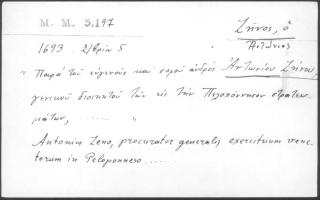 M. M. 5,197
Ζῆνος, ὁ
Ἀντώνιος
1693 2/βρίου 5
"Παρὰ τοῦ εὐγενοῦς καὶ σοφοῦ ἀνδρὸς Ἀντωνίου Ζήνου,
γενικοῦ διοικητοῦ τῶν εἰς τὴν Πελοπόννησον στρατευ-
μάτων, ......
Antonius Zeno, procurator generalis exercituum vene-
torum in Peloponneso .....